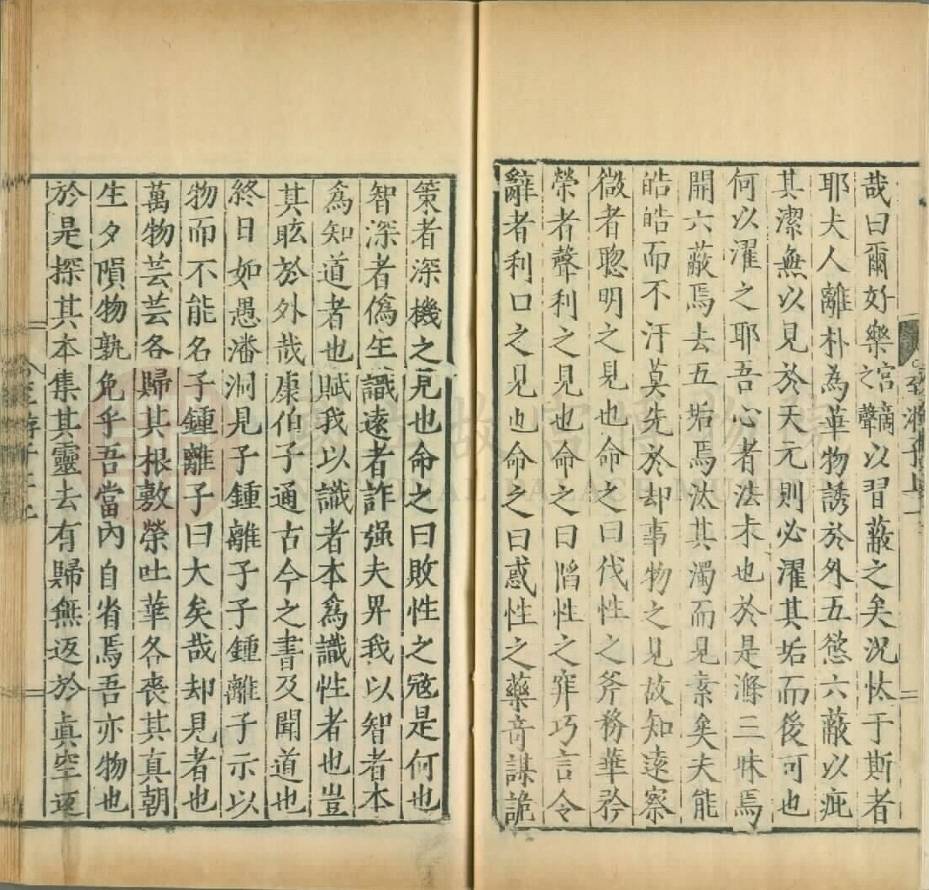 哉曰爾好樂宮商之聲以習蔽之矣況怢于斯者
耶夫人離朴為華物誘於外五慾六蔽以疵
其潔無以見於天元則必濯其垢而後可也
何以濯之耶吾心者法未也於是滌三昧焉
開六蔽焉去五垢焉汰其濁而見素矣夫能
皓皓而不汙莫先於却事物之見故知遠察
微者聰明之見也命之曰伐性之斧務華矜
榮者聲利之見也命之曰慆性之穽巧言令
辭者利口之見也命之曰惑性之藥奇謀詭
至游子上
策者深機之見也命之曰敗性之寇是何也
智深者偽生識遠者詐强夫畀我以智者本
為知道者也賦我以識者本為識性者也豈
其眩於外哉康伯子通古今之書及聞道也
終日如愚潘洞見子鍾離子子鍾離子示以
物而不能名子鍾離子曰大矣哉却見者也
萬物芸芸各歸其根敷榮吐華各喪其真朝
生夕隕物孰免乎吾當內自省焉吾亦物也
於是探其本集其靈去有歸無返於真空逐